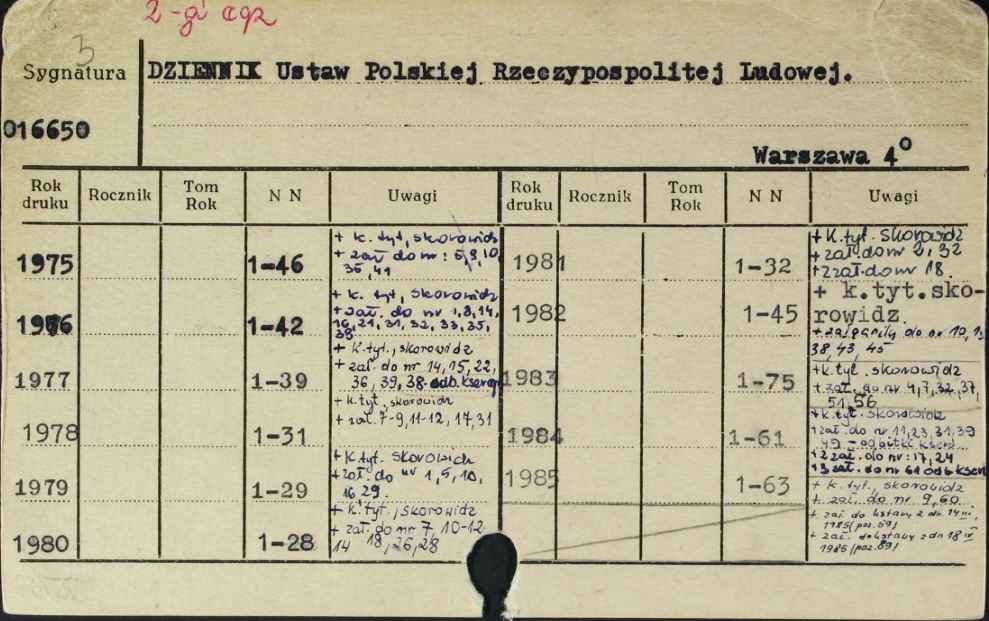 2-gi egz
3
Sygnatura
DZIENNIK Ustaw Polskiej Rzeczypospolitej Ludowej.
016650
Warszawa 4°
Rok druku Rocznik Tom Rok N N Uwagi Rok druku Rocznik Tom Rok N N Uwagi
1975 1-46
+ k. tyt, skorowidz
+ zał do nr: 5,9,10,
35, 41
1976 1-42
+ k. tyt, skorowidz
+ zał. do nr 1,8,14,
16,21,31,32,33,35,
38
1977 1-39
+ k.tyt., skorowidz
+ zał. do nr 14,15,22,
36, 39, 38 odb. kserogr
1978 1-31
+ k.tyt, skorowidz
+ zał. 7-9,11-12, 17,31
1979 1-29
+ k.tyt. skorowidz
+ zał. do nr 1,5,10,
16 29.
1980 1-28
+ k.tyt., skorowidz
+ zał. do nr 7, 10-12
14 18,26,28
1981 1-32
+ k.tyt. skorowidz
+ zał. do nr 2, 32
+ 2 zał. do nr 18.
1982 1-45
+ k.tyt.sko-
rowidz.
+ do nr 10,
38, 43, 45
1983 1-75
+ k.tyt. skorowidz
+ zał. do nr 4,7,32,37,
51,56
1984 1-61
+ k.tyt. skorowidz
+ zał. do nr 11,23,31,39
49 - odbitki kser.
+ 2 zał. do nr: 17, 24
+ 3 zał. do nr 61 odb kser
1985 1-63
+ k. tyt., skorowidz
+ zał. do nr 9,60.
+ zał do ustawy z dn. 14 III.
1985 (poz. 59)
+ zał. do ustawy z dn 18 IV
1985 (poz. 89)